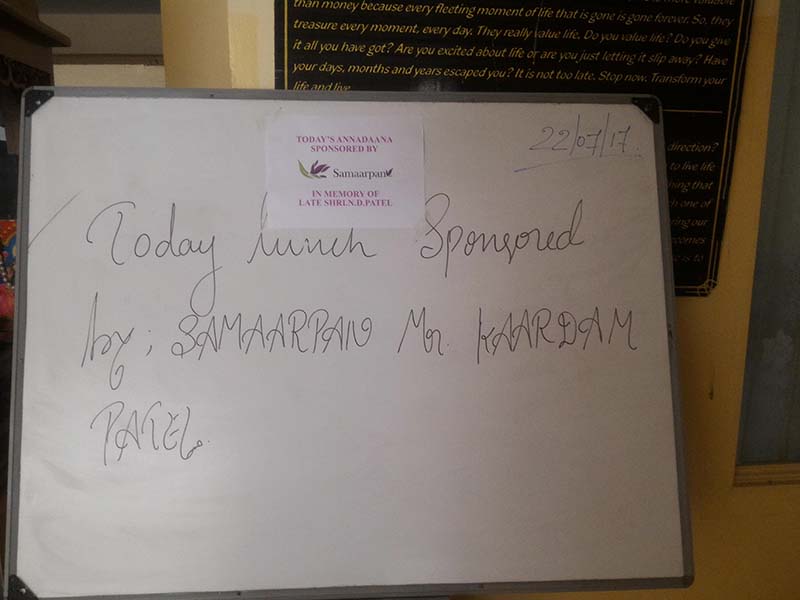 than money because every fleeting moment of life that is gone is gone forever. So, they
treasure every moment, every day. They really value life. Do you value life? Do you give
it all you have got? Are you excited about life or are you just letting it slip away? Have
your days, months and years escaped you? It is not too late. Stop now. Transform your
life and live
direction?
to live life
hing that
ch one of
ring our
comes
is to
TODAY'S ANNADAANA
SPONSORED BY
Samaarpan
IN MEMORY OF
LATE SHRI.N.D.PATEL
22/07/17
Today lunch Sponsored
by; SAMAARPAN Mr. KAARDAM
PATEL.